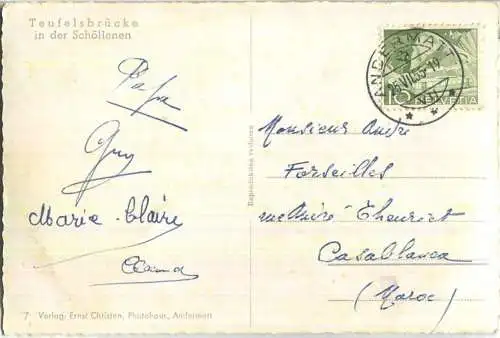 Teufelsbrücke
in der Schöllenen
ANDERMATT
10 HELVETIA
Papa
Guy
Marie-Claire
Monsieur André
Forseilles
rue André Theuriet
Casablanca
(Maroc)
Reproduktion verboten
7 Verlag: Ernst Christen, Photohaus, Andermatt